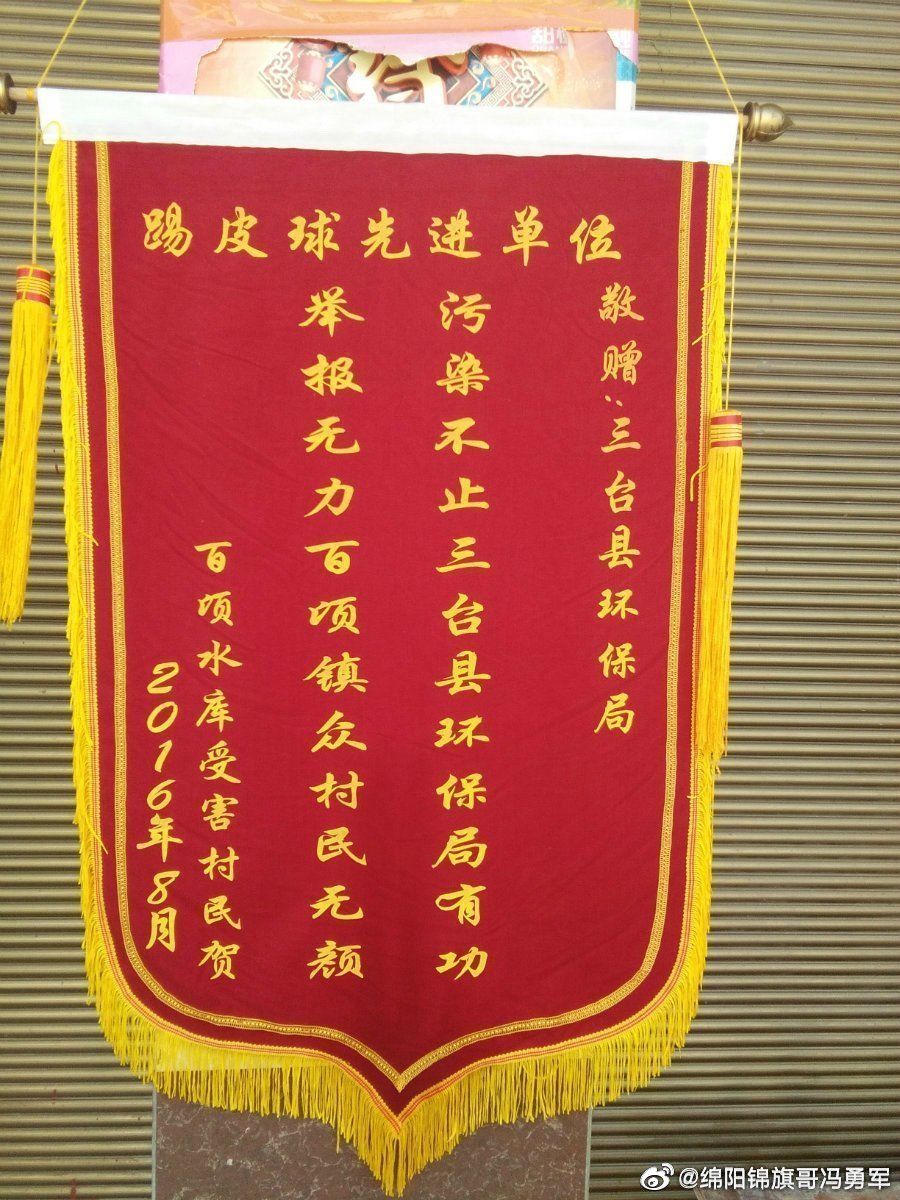 踢皮球先进单位
敬赠：三台县环保局
污染不止三台县环保局有功
举报无力百顷镇众村民无颜
百顷水库受害村民贺
2016年8月
@绵阳锦旗哥冯勇军